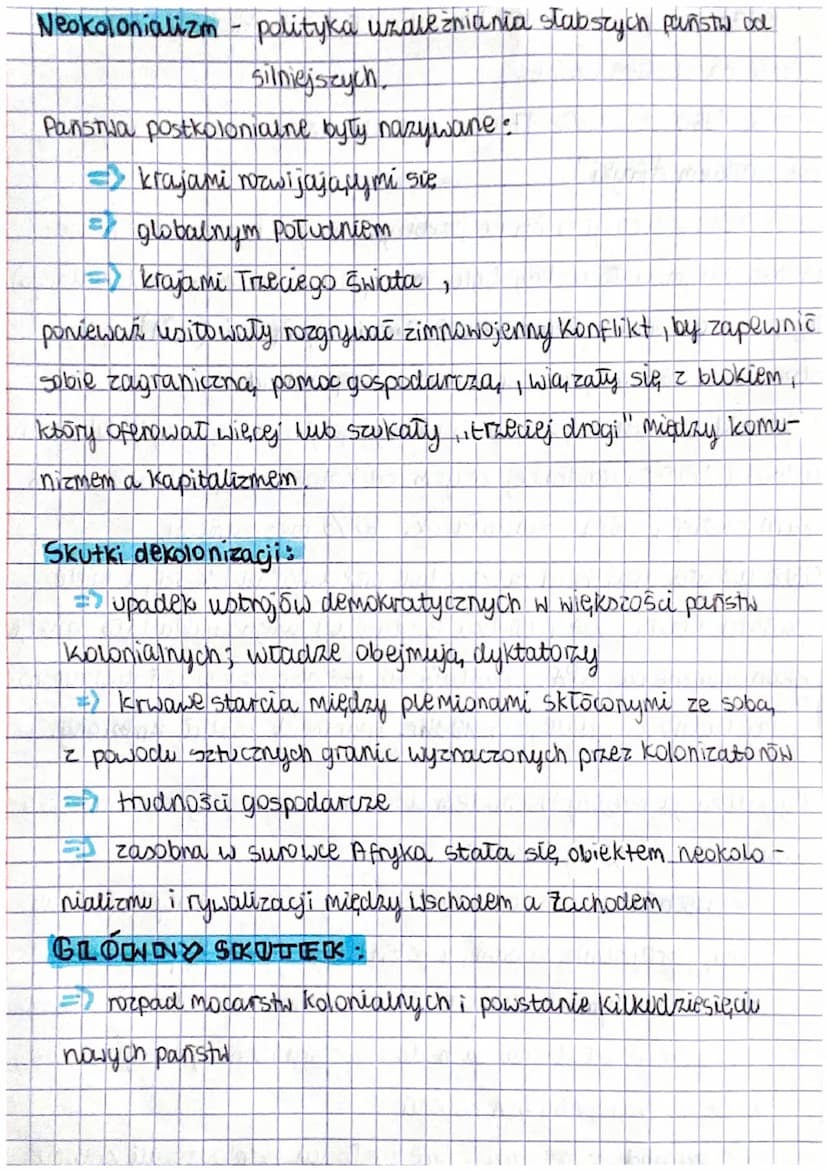 Neokolonializm - polityka uzależniania słabszych państw od
silniejszych.
Państwa postkolonialne były nazywane:
=> krajami rozwijającymi się
=> globalnym Południem
=> krajami Trzeciego Świata ,
ponieważ usitowały rozgrywać zimnowojenny konflikt, by zapewnić
sobie zagraniczną pomoc gospodarczą, wiązały się z blokiem,
który oferował więcej lub szukały ,,trzeciej drogi" między komu-
nizmem a kapitalizmem.
Skutki dekolonizacji:
=> upadek ustrojów demokratycznych w większości państw
kolonialnych; władze obejmują dyktatorzy
=> krwawe starcia między plemionami skłóconymi ze sobą
z powodu sztucznych granic wyznaczonych przez kolonizatorów
=> trudności gospodarcze
=> zasobna w surowce Afryka stała się obiektem neokolo-
nializmu i rywalizacji między Wschodem a Zachodem
GŁÓWNY SKUTEK:
=> rozpad mocarstw kolonialnych i powstanie kilkudziesięciu
nowych państw